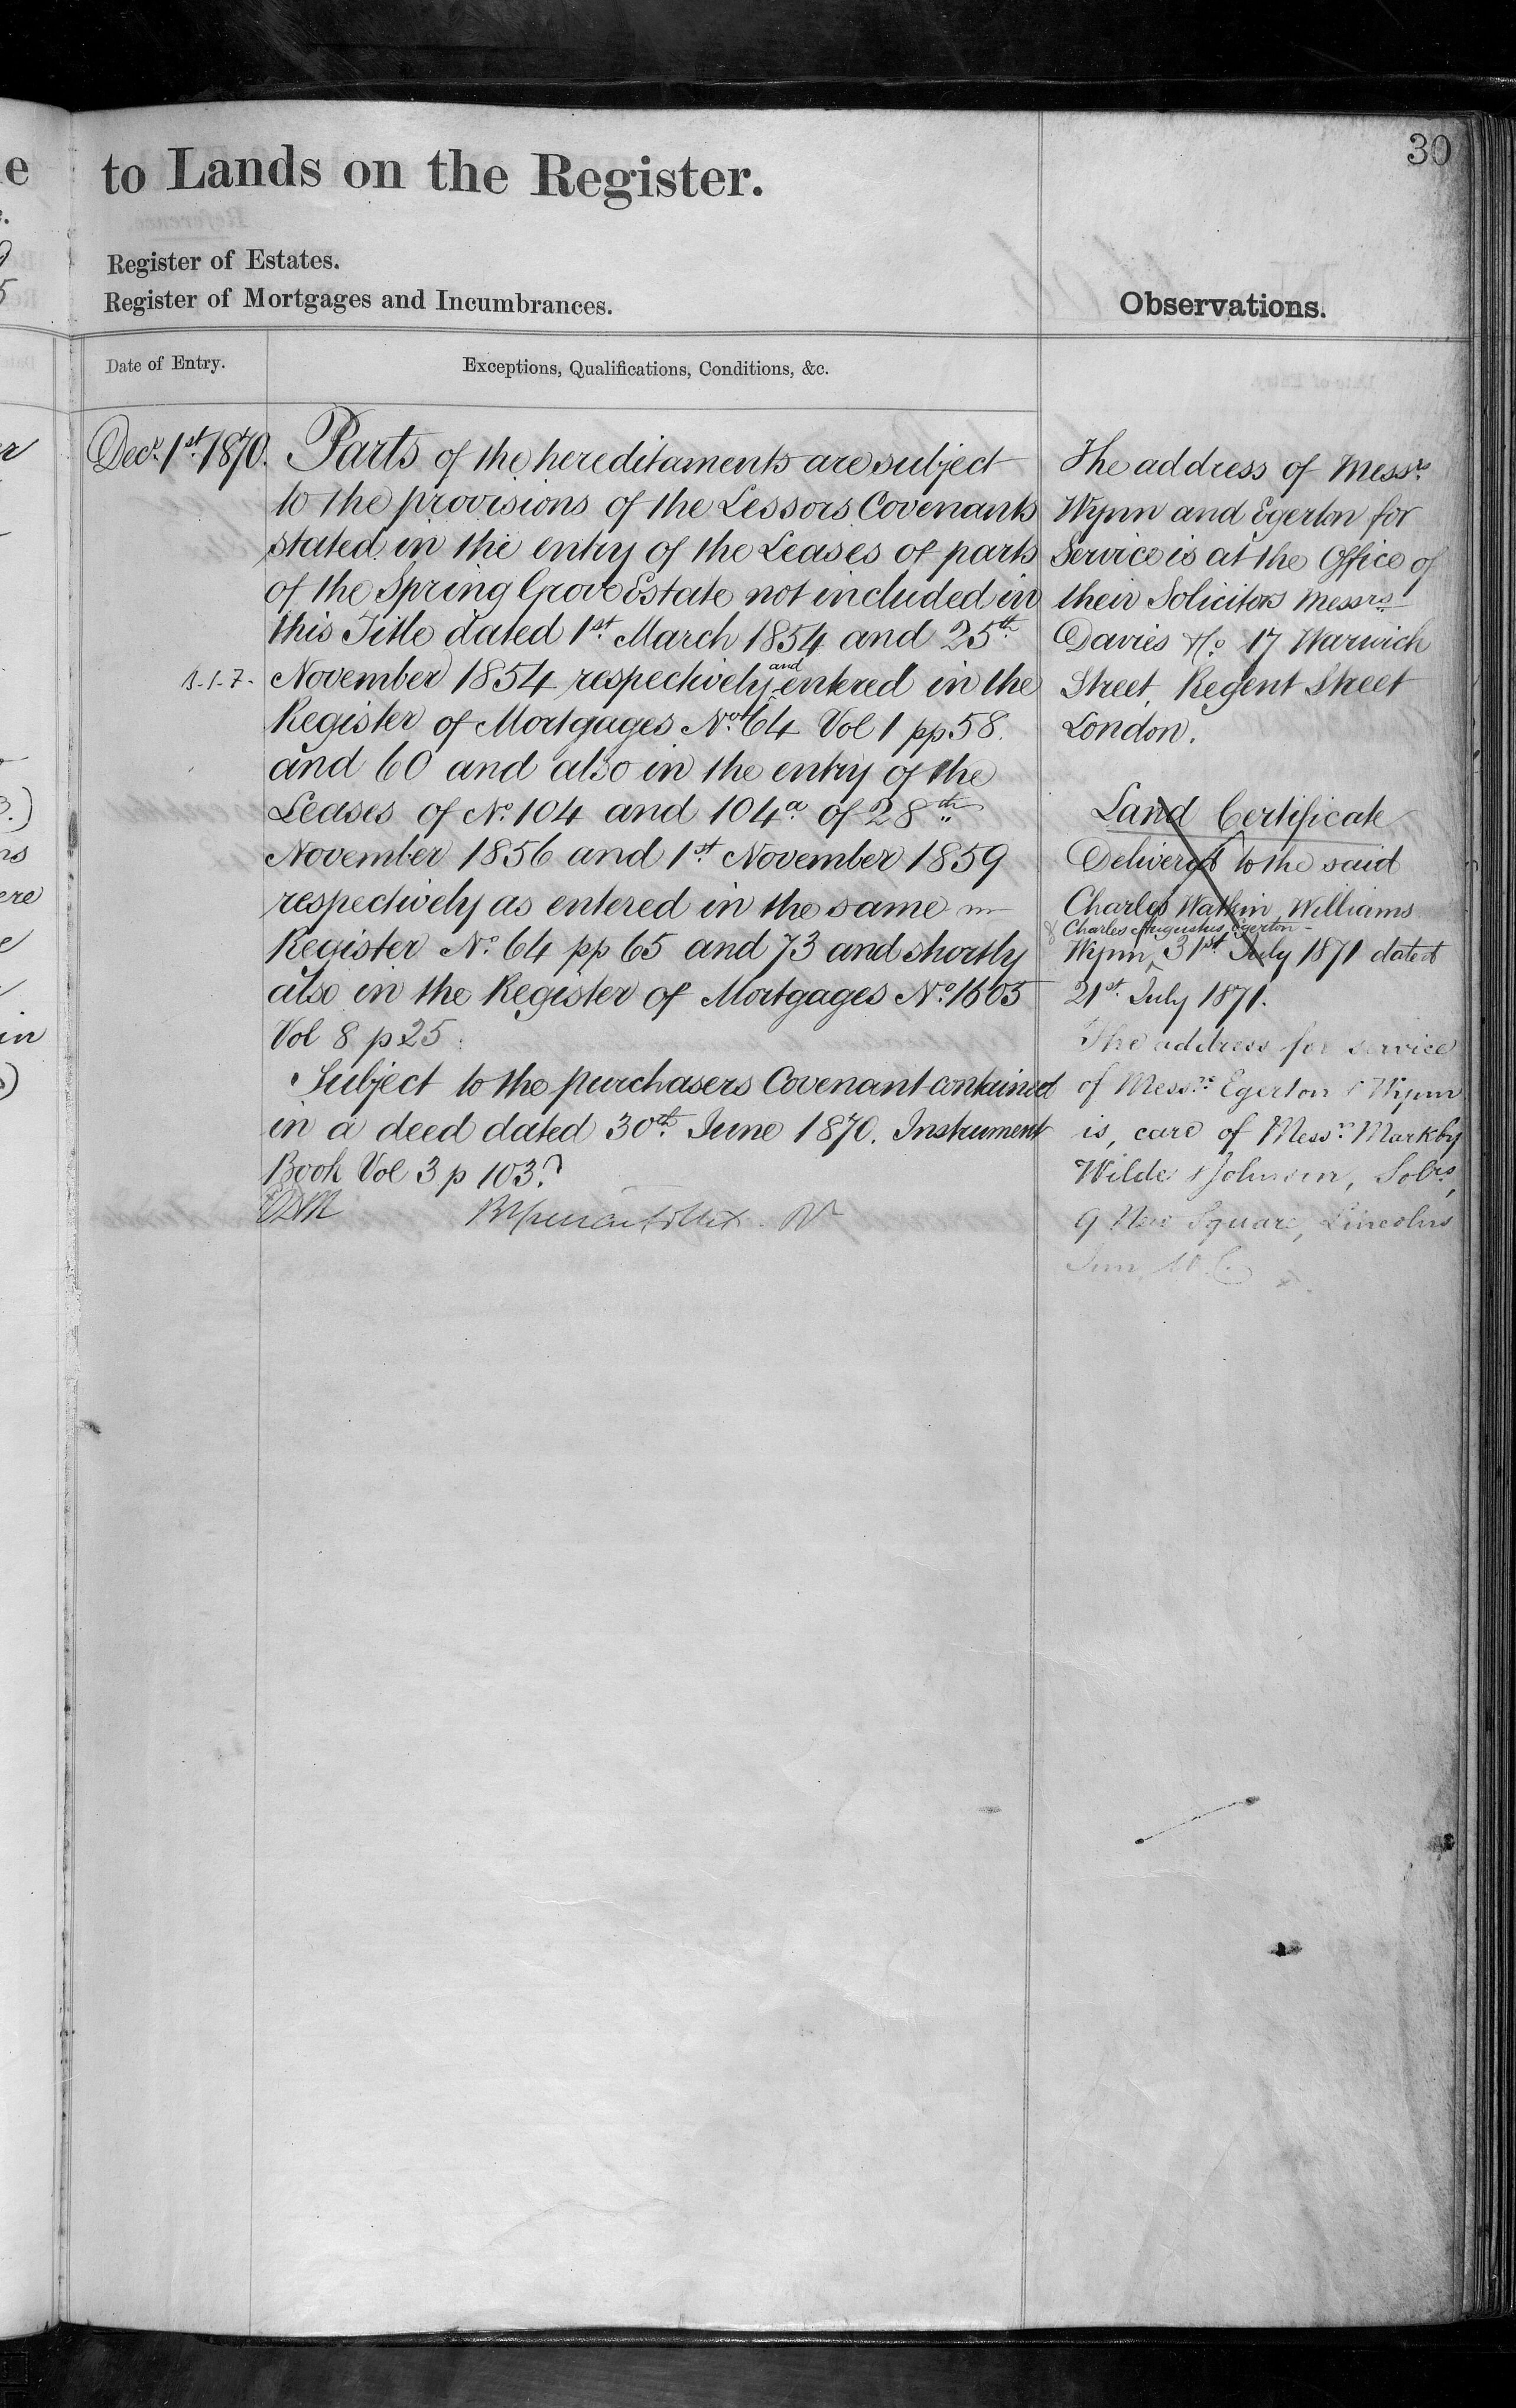 30
to Lands on the Register.
Register of Estates.
Register of Mortgages and Incumbrances.
Observations.
Date of Entry.
Exceptions, Qualifications, Conditions, &c.
Decr. 1st 1870.
Parts of the hereditaments are subject
to the provisions of the Lessors Covenants
stated in the entry of the Leases of parts
of the Spring Grove Estate not included in
this Title dated 1st March 1854 and 25th
November 1854 respectively and entered in the
Register of Mortgages No. 64 Vol 1 pp 58.
and 60 and also in the entry of the
Leases of No. 104 and 104a of 28th
November 1856 and 1st November 1859
respectively as entered in the same
Register No. 64 pp 65 and 73 and shortly
also in the Register of Mortgages No. 1603
Vol 8 p 25.
Subject to the purchasers Covenant contained
in a deed dated 30th June 1870. Instrument
Book Vol 3 p 103.
The address of Messrs.
Wynn and Egerton for
Service is at the Office of
their Solicitors Messrs
Davies & Co. 17 Warwick
Street, Regent Street
London.
Land Certificate
Delivered to the said
Charles Watkin Williams
& Charles Augustus Egerton
Wynn, 31st July 1871 dated
21st July 1871.
The address for service
of Messrs. Egerton & Wynn
is, care of Messrs. Markby
Wilde & Johnson, Solrs,
9 New Square, Lincolns
Inn, W.C.